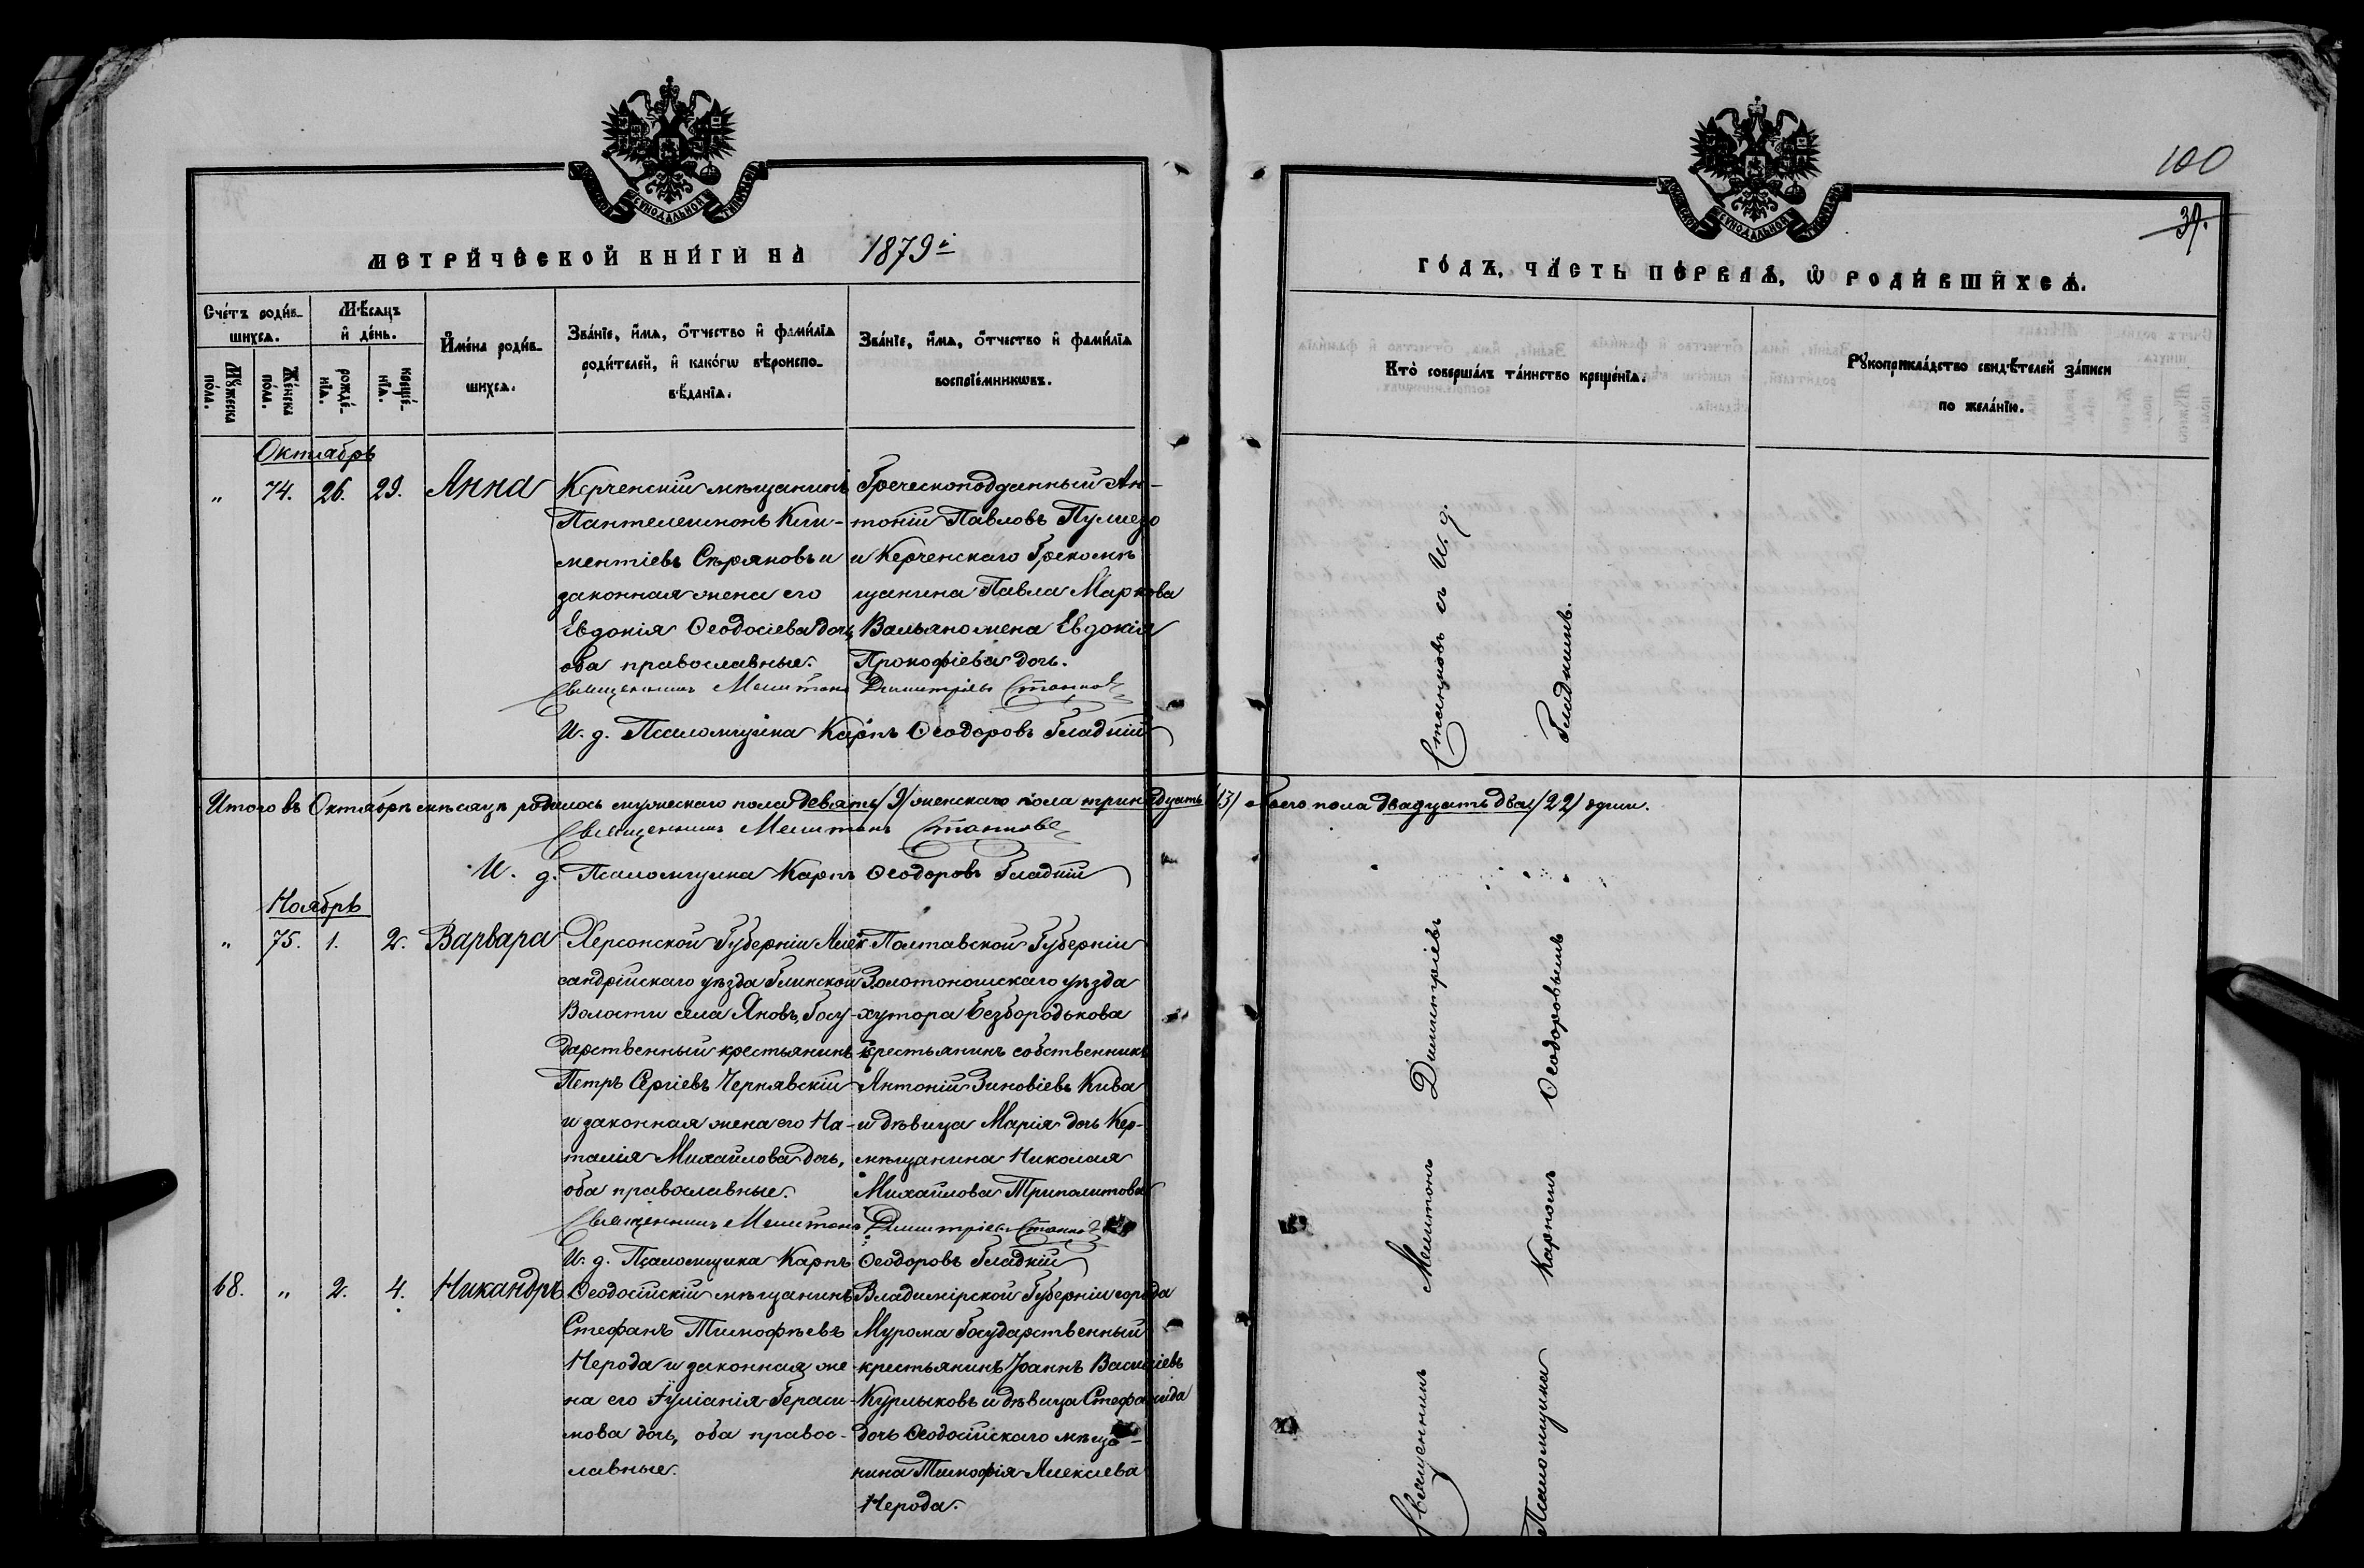 МЕТРИЧЕСКОЙ КНИГИ НА 1879й
Счетъ родив-
шихся.
Мѣсяцъ
и день.
Имена родив-
шихся.
Званїе, имя, отчество и фамилїя
родителей, и какогѡ вѣроиспо-
вѣданїя.
Званїе, имя, отчество и фамилїя
воспрїемникѡвъ.
Мужеска
пола.
Женска
пола.
рожде-
нїя.
креще-
нїя.
Октябрь
" 74. 26. 29. Анна
Керченскій мѣщанинъ
Пантелеимонъ Кли-
ментіевъ Сѣряковъ и
законная жена его
Евдокія Ѳеодосіева дочь,
оба православные.
Греческоподданный Ан-
тоній Павловъ
и Керченскаго Грекомѣ
щанина Павла Маркова
Вальяно жена Евдокія
Прокофіева дочь.
Священникъ Мелитонъ Димитріевъ Станковъ
И. д. Псаломщика Карпъ Ѳеодоровъ Гладкій
Итого въ Октябрѣ мѣсяцѣ родилось мужескаго пола девять /9/ женскаго пола тринадцать /13/ обоего пола двадцать два /22/ души.
Священникъ Мелитонъ Станковъ
И. д. Псаломщика Карпъ Ѳеодоровъ Гладкій
Ноябрь
" 75. 1. 2. Варвара
Херсонской Губерніи Алек
сандрійскаго уѣзда Глинской
Волости села Яновъ, Госу-
дарственный крестьянинъ
Петръ Сергіевъ Чернявскій
и законная жена его На-
талія Михайлова дочь,
оба православные.
Полтавской Губерніи
Золотоношскаго уѣзда
хутора Безбородькова
крестьянинъ собственникъ
Антоній Зиновіевъ Кива
и дѣвица Марія дочь Кер-
мѣщанина Николая
Михайлова Триполитова
Священникъ Мелитонъ Димитріевъ Станковъ
И. д. Псаломщика Карпъ Ѳеодоровъ Гладкій
68. " 2. 4. Никандръ
Ѳеодосійскій мѣщанинъ
Стефанъ Тимофѣевъ
Нерода и законная же-
на его Іуліанія Гераси-
мова дочь, оба правос-
лавные.
Владимірской Губерніи города
Мурома Государственный
крестьянинъ Іоаннъ Василіевъ
Курлыковъ и дѣвица Стефанида
дочь Ѳеодосійскаго мѣща-
нина Тимофія Алексіева
Нерода.
100
39.
ГОДЪ, ЧАСТЬ ПЕРВАЯ, Ѡ РОДИВШИХСЯ.
Кто совершалъ таинство крещенїя.
Рукоприкладство свидѣтелей записи
по желанїю.
Священникъ Мелитонъ Димитріевъ Станковъ съ И. д.
Псаломщика Карпомъ Ѳеодоровымъ Гладкимъ.